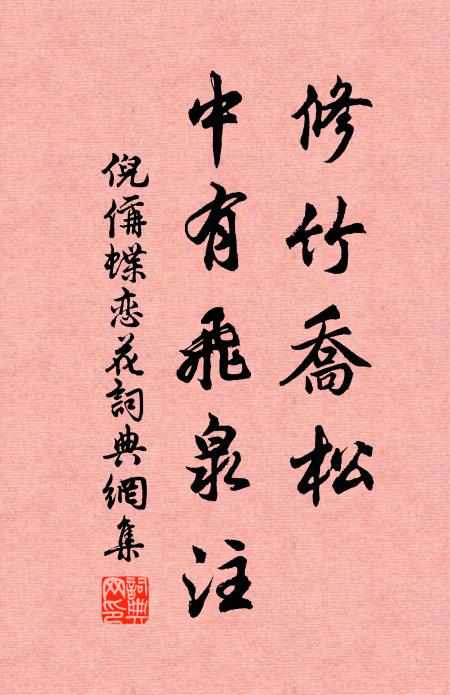 修竹喬松
中有飛泉注
倪偁蝶恋花詞典網集
詞典網印